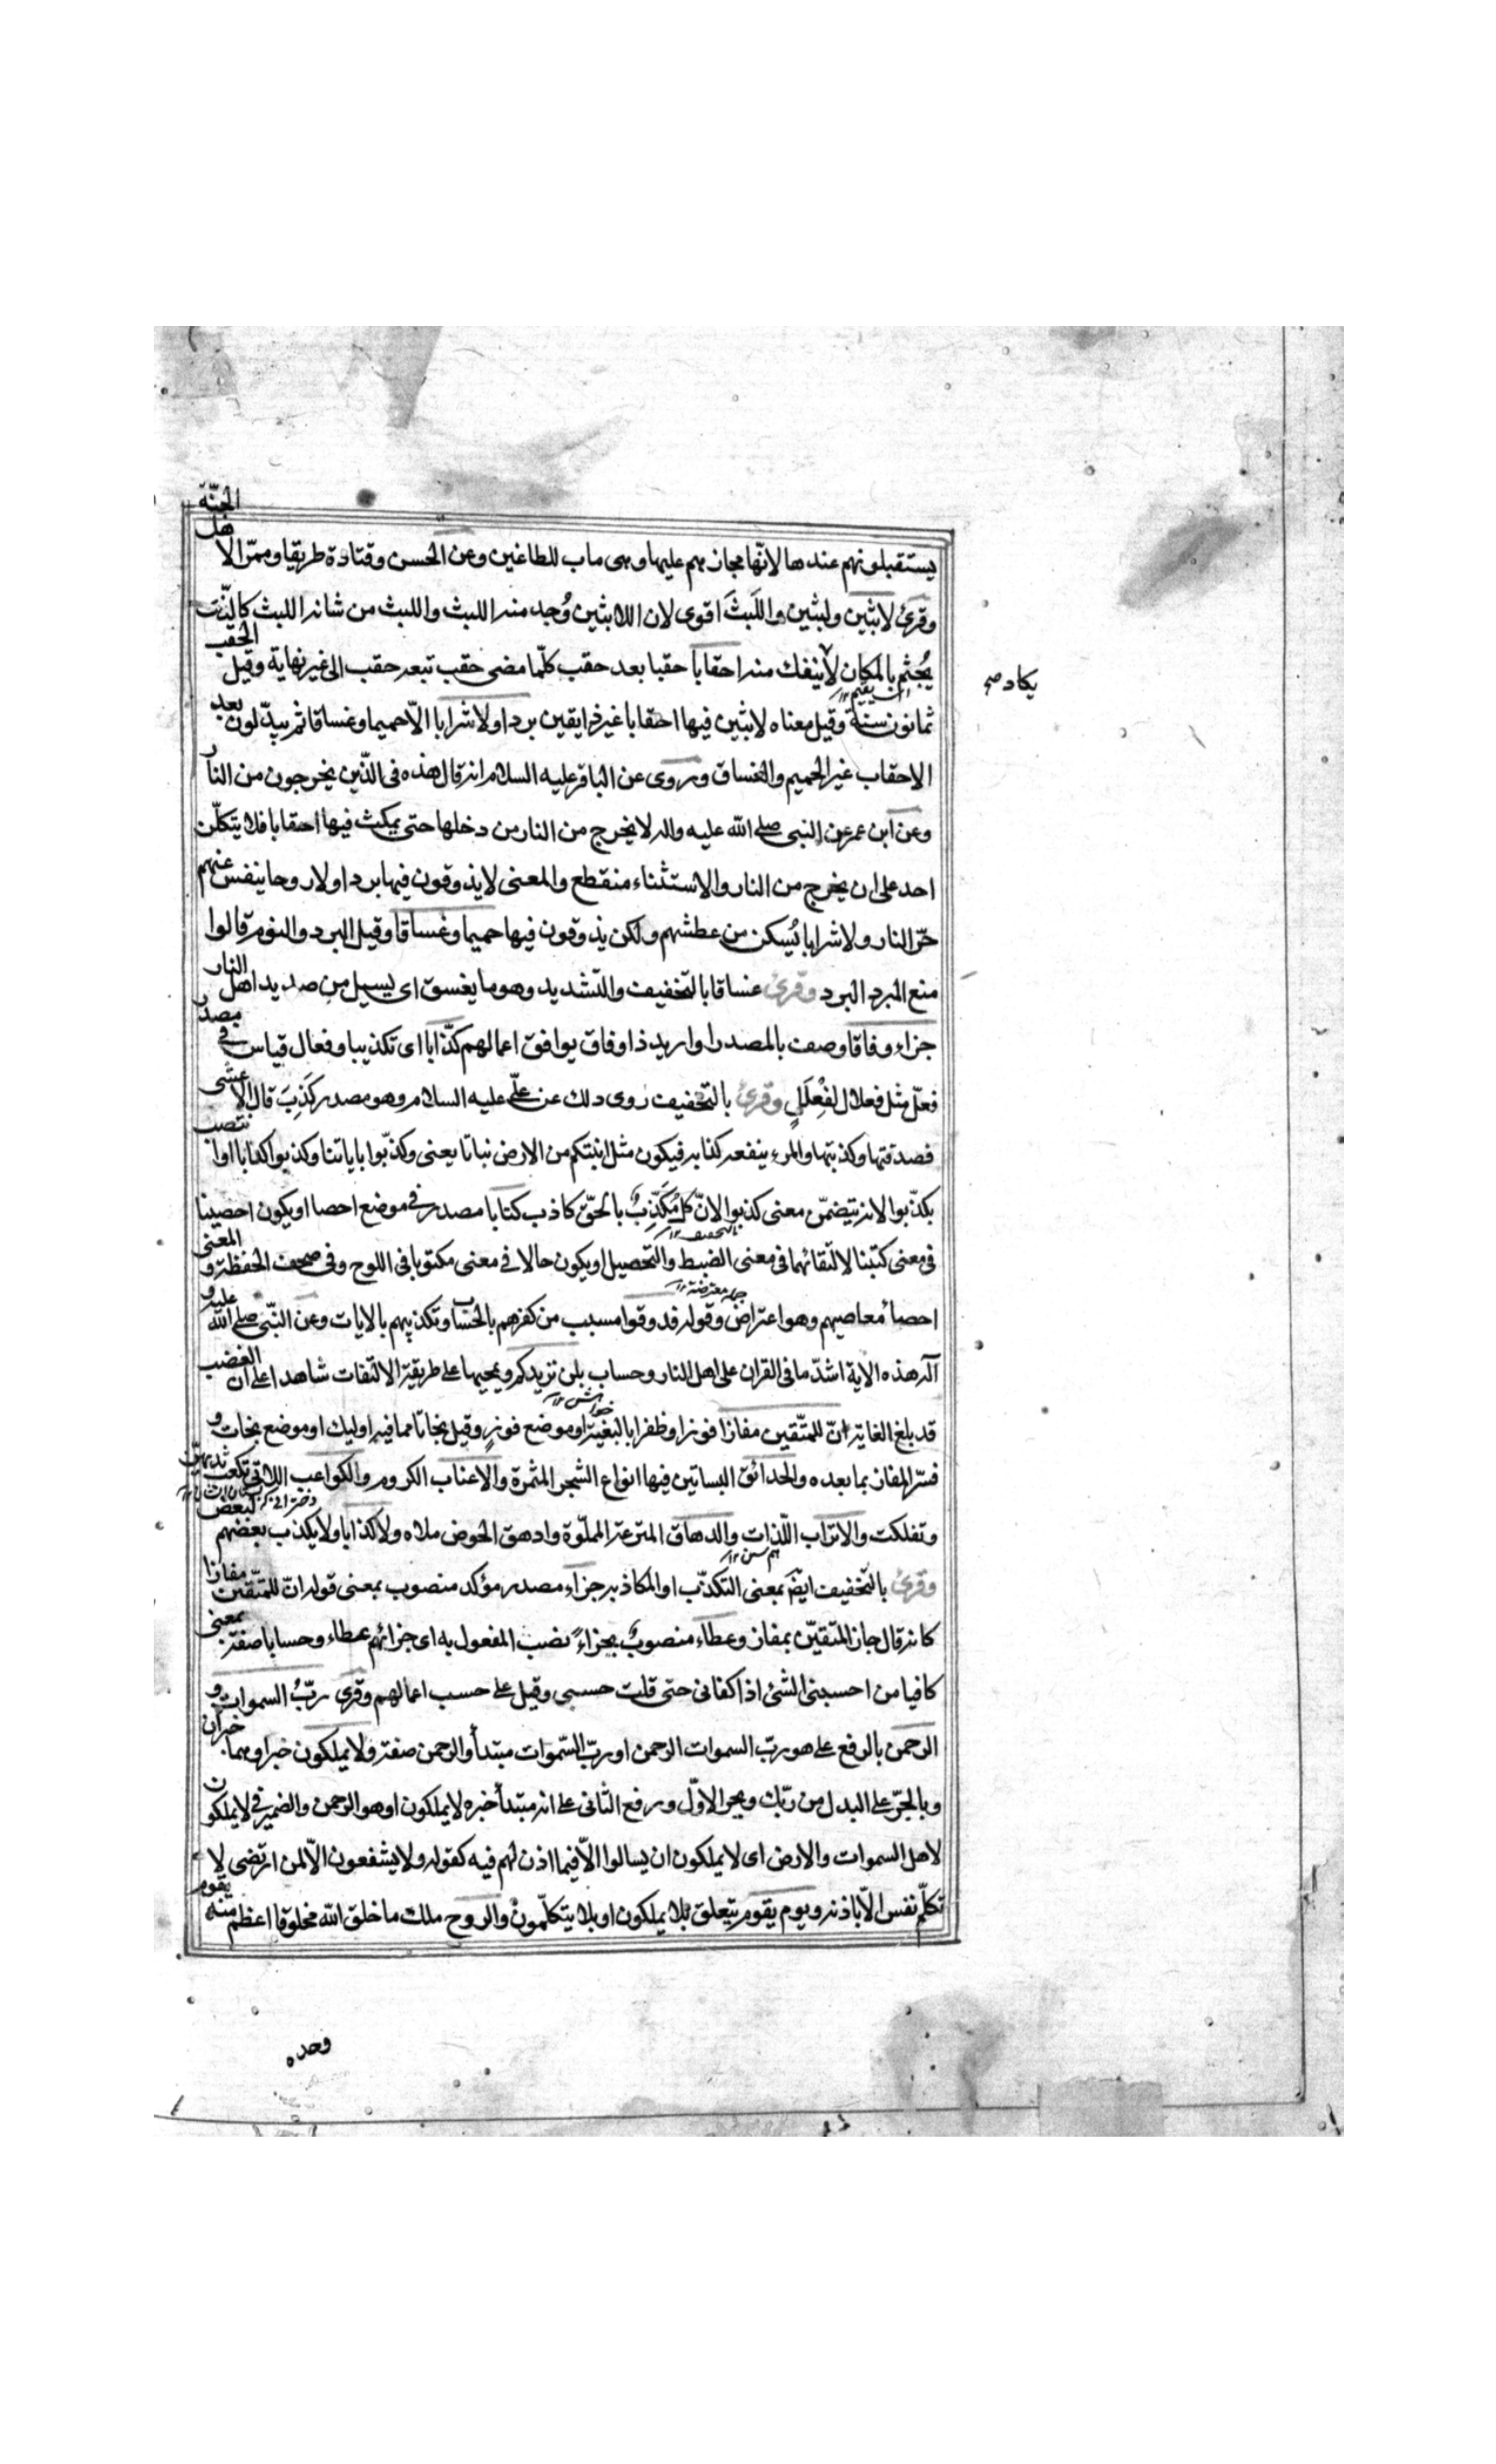 يستقبلونهم عندها لانّها مجازهم عليها وهى ماب للطاغين وعن الحسن وقتادة طريقا وممرّا لاهل الجنّة
وقرئ لابثين ولبثين واللّبث اقوى لان اللابثين وُجد منه اللبث واللبث من شانه اللبث كالذى
يجثم بالمكان لا ينفك منه احقابا حقبا بعد حقب كلّما مضى حقب تبعه حقب الى غير نهاية وقيل الحقب
يكاد صح
ثمانون سنة وقيل معناه لابثين فيها احقابا غير ذايقين بردا ولا شرابا الاّ حميما وغساقا ثم يبدّلون بعد
الاحقاب غير الحميم والغساق وروى عن الباقر عليه السلام انه قال هذه فى الذّين يخرجون من النار
وعن ابن عمر عن النبى صلى الله عليه واله لا يخرج من النار من دخلها حتى يمكث فيها احقابا فلا يتكلّن
احد على ان يخرج من النار والاستثناء منقطع والمعنى لا يذوقون فيها بردا ولا روحا ينفس عنهم
حرّ النار ولا شرابا يُسكن من عطشهم ولكن يذوقون فيها حميما وغساقا وقيل البرد والنوم قالوا
منع البرد البرد وقرئ غساقا بالتخفيف والتشديد وهو ما يغسق اى يسيل من صديد اهل النار
جزاء وفاقا وصف بالمصدر او اريد ذا وفاق يوافق اعمالهم كذّابا اى تكذيبا وفعال قياس فى مصدر
فعّل مثل فعلال لفِعلَلَ وقرئ بالتخفيف روى ذلك عن علّى عليه السلام وهو مصدر كَذِبَ قال الاعشى
فصدقتها وكذبتها والمرء ينفعه كذابه فيكون مثل انبتكم من الارض نباتا يعنى وكذّبوا باياتنا وكذبوا كذابا او تنتصب
بكذّبوا لانه يتضمّن معنى كذبوا لانّ كلّ مُكَذِّبٍ بالحقّ كاذب كتابا مصدر فى موضع احصا او يكون احصينا
فى معنى كتبنا لالتقائهما فى معنى الضبط والتحصيل او يكون حالا فى معنى مكتوبا فى اللوح وفى صحف الحفظة والمعنى
جمله معترضة ١٢
احصاء معاصيهم وهو اعتراض وقوله فذوقوا مسبب من كفرهم بالحساب وتكذيبهم بالايات وعن النّبى صلى الله عليه و
آله هذه الاية اشدّ ما فى القران على اهل النار وحساب بلن نزيدكم ويجيها على طريقة الالتفات شاهدا على ان الغضب
قد بلغ الغاية انّ للمتّقين مفازا فوزا وظفرا بالبغية او موضع فوز وقيل نجاتا مما فيه اوليك او موضع نجات و
فسّر المفاز بما بعده والحدائق البساتين فيها انواع الشجر المثمرة والاعناب الكروم والكواعب اللاتى تكعب ثديهنّ
وتفلكت والاتراب اللّذات والدهاق المترعة المملّوة وادهق الحوض ملاه ولا كذابا ولا يكذب بعضهم لبعض
هم سن ١٢
وقرئ بالتخفيف ايضا بمعنى التكذّب او المكاذبه جزاء مصدر مؤكد منصوب بمعنى قوله انّ للمتّقين مفازا
كانه قال جاز المتقيّن بمفاز وعطاء منصوبٌ بجزاءً نصب المفعول به اى جزائهم عطاء وحسابا صفة بمعنى
كافيا من احسبنى الشئ اذا كفانى حتى قلت حسبى وقيل على حسب اعمالهم وقرئ ربّ السموات و
الرحمن بالرفع على هو ربّ السموات الرحمن او ربّ السّموات مبتدأ والرحمن صفة ولا يملكون خبر او هما خبران
وبالجرّ على البدل من ربّك وبجر الاوّل ورفع الثّانى على انه مبتدأ خبره لا يملكون او هو الرحمن والضمير فى لا يملكون
لاهل السموات والارض اى لا يملكون ان يسالوا الاّ فيما اذن لهم فيه كقوله ولا يشفعون الاّ لمن ارتضى لا
تكلّم نفس الاّ باذنه ويوم يقوم يتعلق بلا يملكون او بلا يتكلّمون والروح ملك ما خلق الله مخلوقا اعظم منه يقوم
وحده